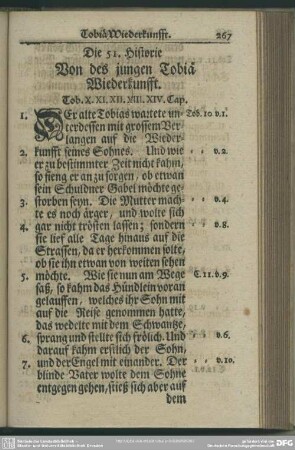 Tobiä Wiederkunfft. 267
Die 51. Historie
Von des jungen Tobiä
Wiederkunfft.
Tob. X. XI. XII. XIII. XIV. Cap.
1. DEr alte Tobias wartete un- Tob. 10. v. 1.
terdessen mit grossem Ver-
langen auf die Wieder-
2. kunfft seines Sohnes. Und wie „ „ v. 2.
er zu bestimmter Zeit nicht kahm,
so fieng er an zu sorgen, ob etwan
sein Schuldner Gabel möchte ge-
3. storben seyn. Die Mutter mach- „ „ v. 4.
te es noch ärger, und wolte sich
4. gar nicht trösten lassen; sondern „ „ v. 8.
sie lief alle Tage hinaus auf die
Strassen, da er herkommen solte,
ob sie ihn etwan von weiten sehen
5. möchte. Wie sie nun am Wege C. 11. v. 9.
saß, so kahm das Hündlein voran
gelauffen, welches ihr Sohn mit
auf die Reise genommen hatte,
das wedelte mit dem Schwantze,
6. sprang und stellte sich frölich. Und „ „ v. 6.
darauf kahm erstlich der Sohn,
7. und der Engel mit einander. Der „ „ v. 10.
blinde Vater wolte dem Sohne
entgegen gehen, stieß sich aber auf
dem